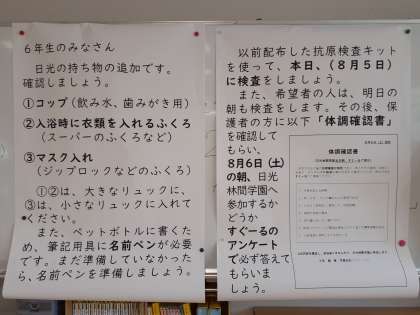 ６年生のみなさん
日光の持ち物の追加です。
確認しましょう。
①コップ(飲み水、歯みがき用)
②入浴時に衣類を入れるふくろ
(スーパーのふくろなど)
③マスク入れ
(ジップロックなどのふくろ)
①②は、大きなリュックに、
③は、小さなリュックに入れて
ください。
また、ペットボトルに書くた
め、筆記用具に名前ペンが必要
です。まだ準備していなかった
ら、名前ペンを準備しましょう。
以前配布した抗原検査キット
を使って、本日、(８月５日)
に検査をしましょう。
また、希望者の人は、明日の
朝も検査をします。その後、保
護者の方に以下「体調確認書」
を確認して
もらい、
8月6日(土)
の朝、日光
林間学園へ
参加するか
どうか
すぐーるの
アンケート
で必ず答えて
もらいま
しょう。
体調確認書